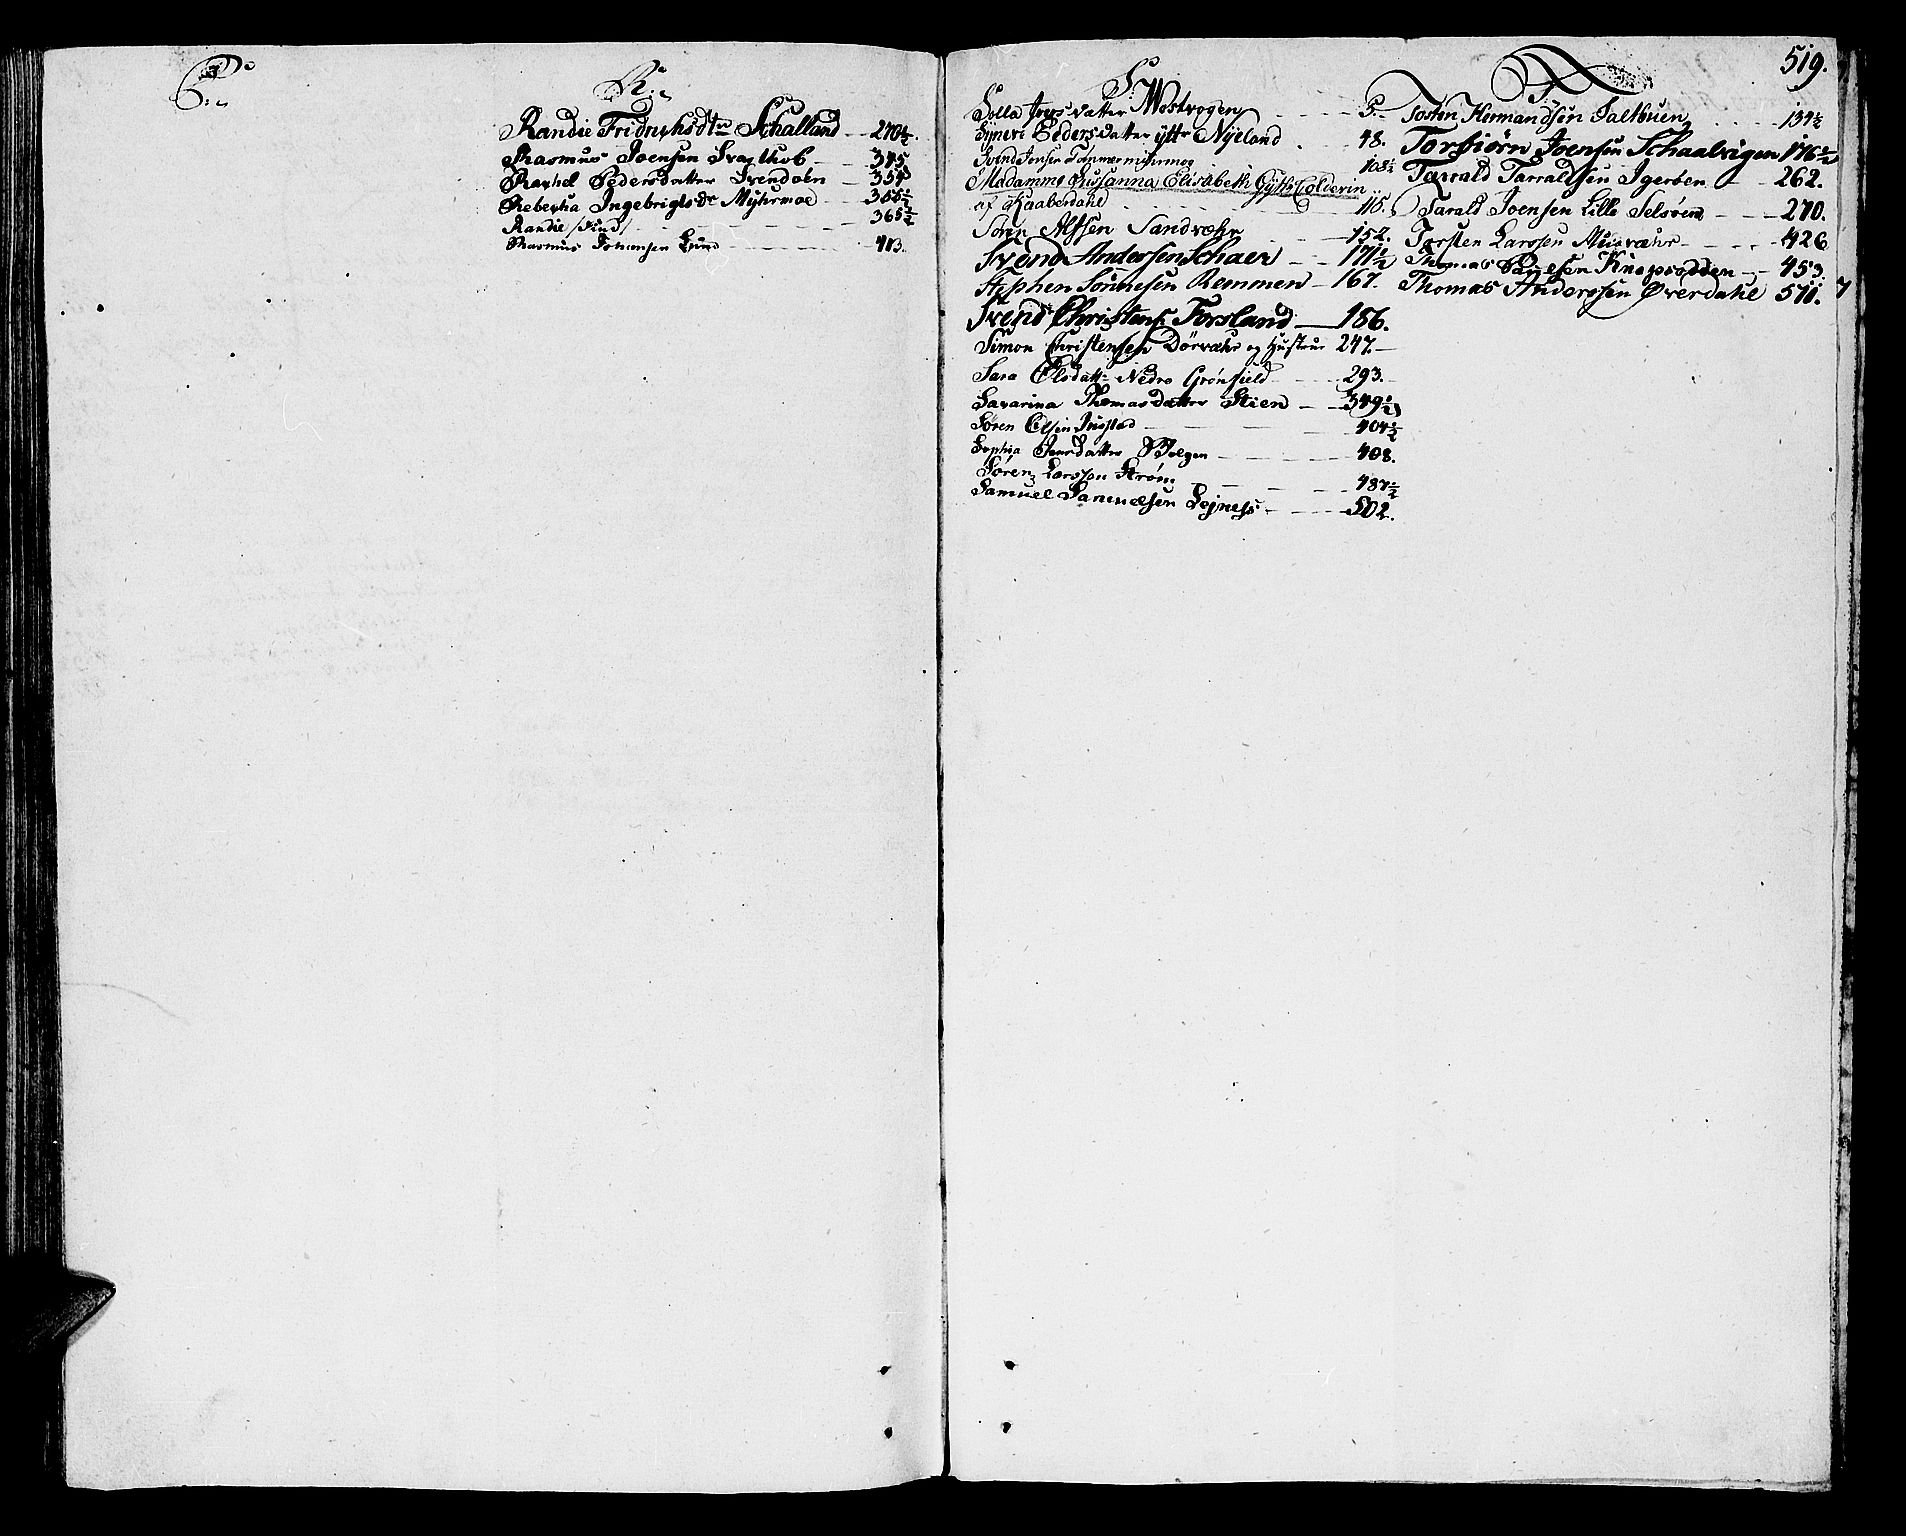 Q:
R:
Randie Fridrichsdtr Schalland 270½.
Rasmus Joensen Svarthob 345
Rachel Pedersdatter Svendalen 354
Rebecha Ingebrigts dr Myhrmoe 355½
Randie Lund 365½
Rasmus Johansen Lund 413.
519.
S:
Solla Joensdatter Westvogen 5.
Synevi Pedersdatter Nyeland 48.
Svend Jonsen Tømmermosmog 108½
Madamme Susanna Elisabeth Gytts Colderin
af Kaaberdahl 115.
Sønn Alfsen Sandvæhr 152.
Svend Anderssen Schaer 171½
Stephen Sønnesen Remmen 167.
Svend Christens: Forsland 186.
Simon Christensen Dørvæhr og Hustrue 247.
Sara Olsdatt: Nedre Grønfield 293.
Zavarina Thomasdatter Stien 349½
Søren Olsen Inslad 404½
Sophia Jensdatter Bolgen 408.
Søren Larssen Strøm 487½
Samuel Samuelsen Lejness 502.
T
Tosten Hermandsen Saltbuen 134½
Torbiørn Joensen Schaalvigen 176½
Tarrald Tarraldsen Igerøen 262.
Tarald Joensen Lille Selsøen 270.
Torsten Larssen Musvæhr 426
Thomas Knapsodden 453.
Thomas Anderssen Øverdahl 511.